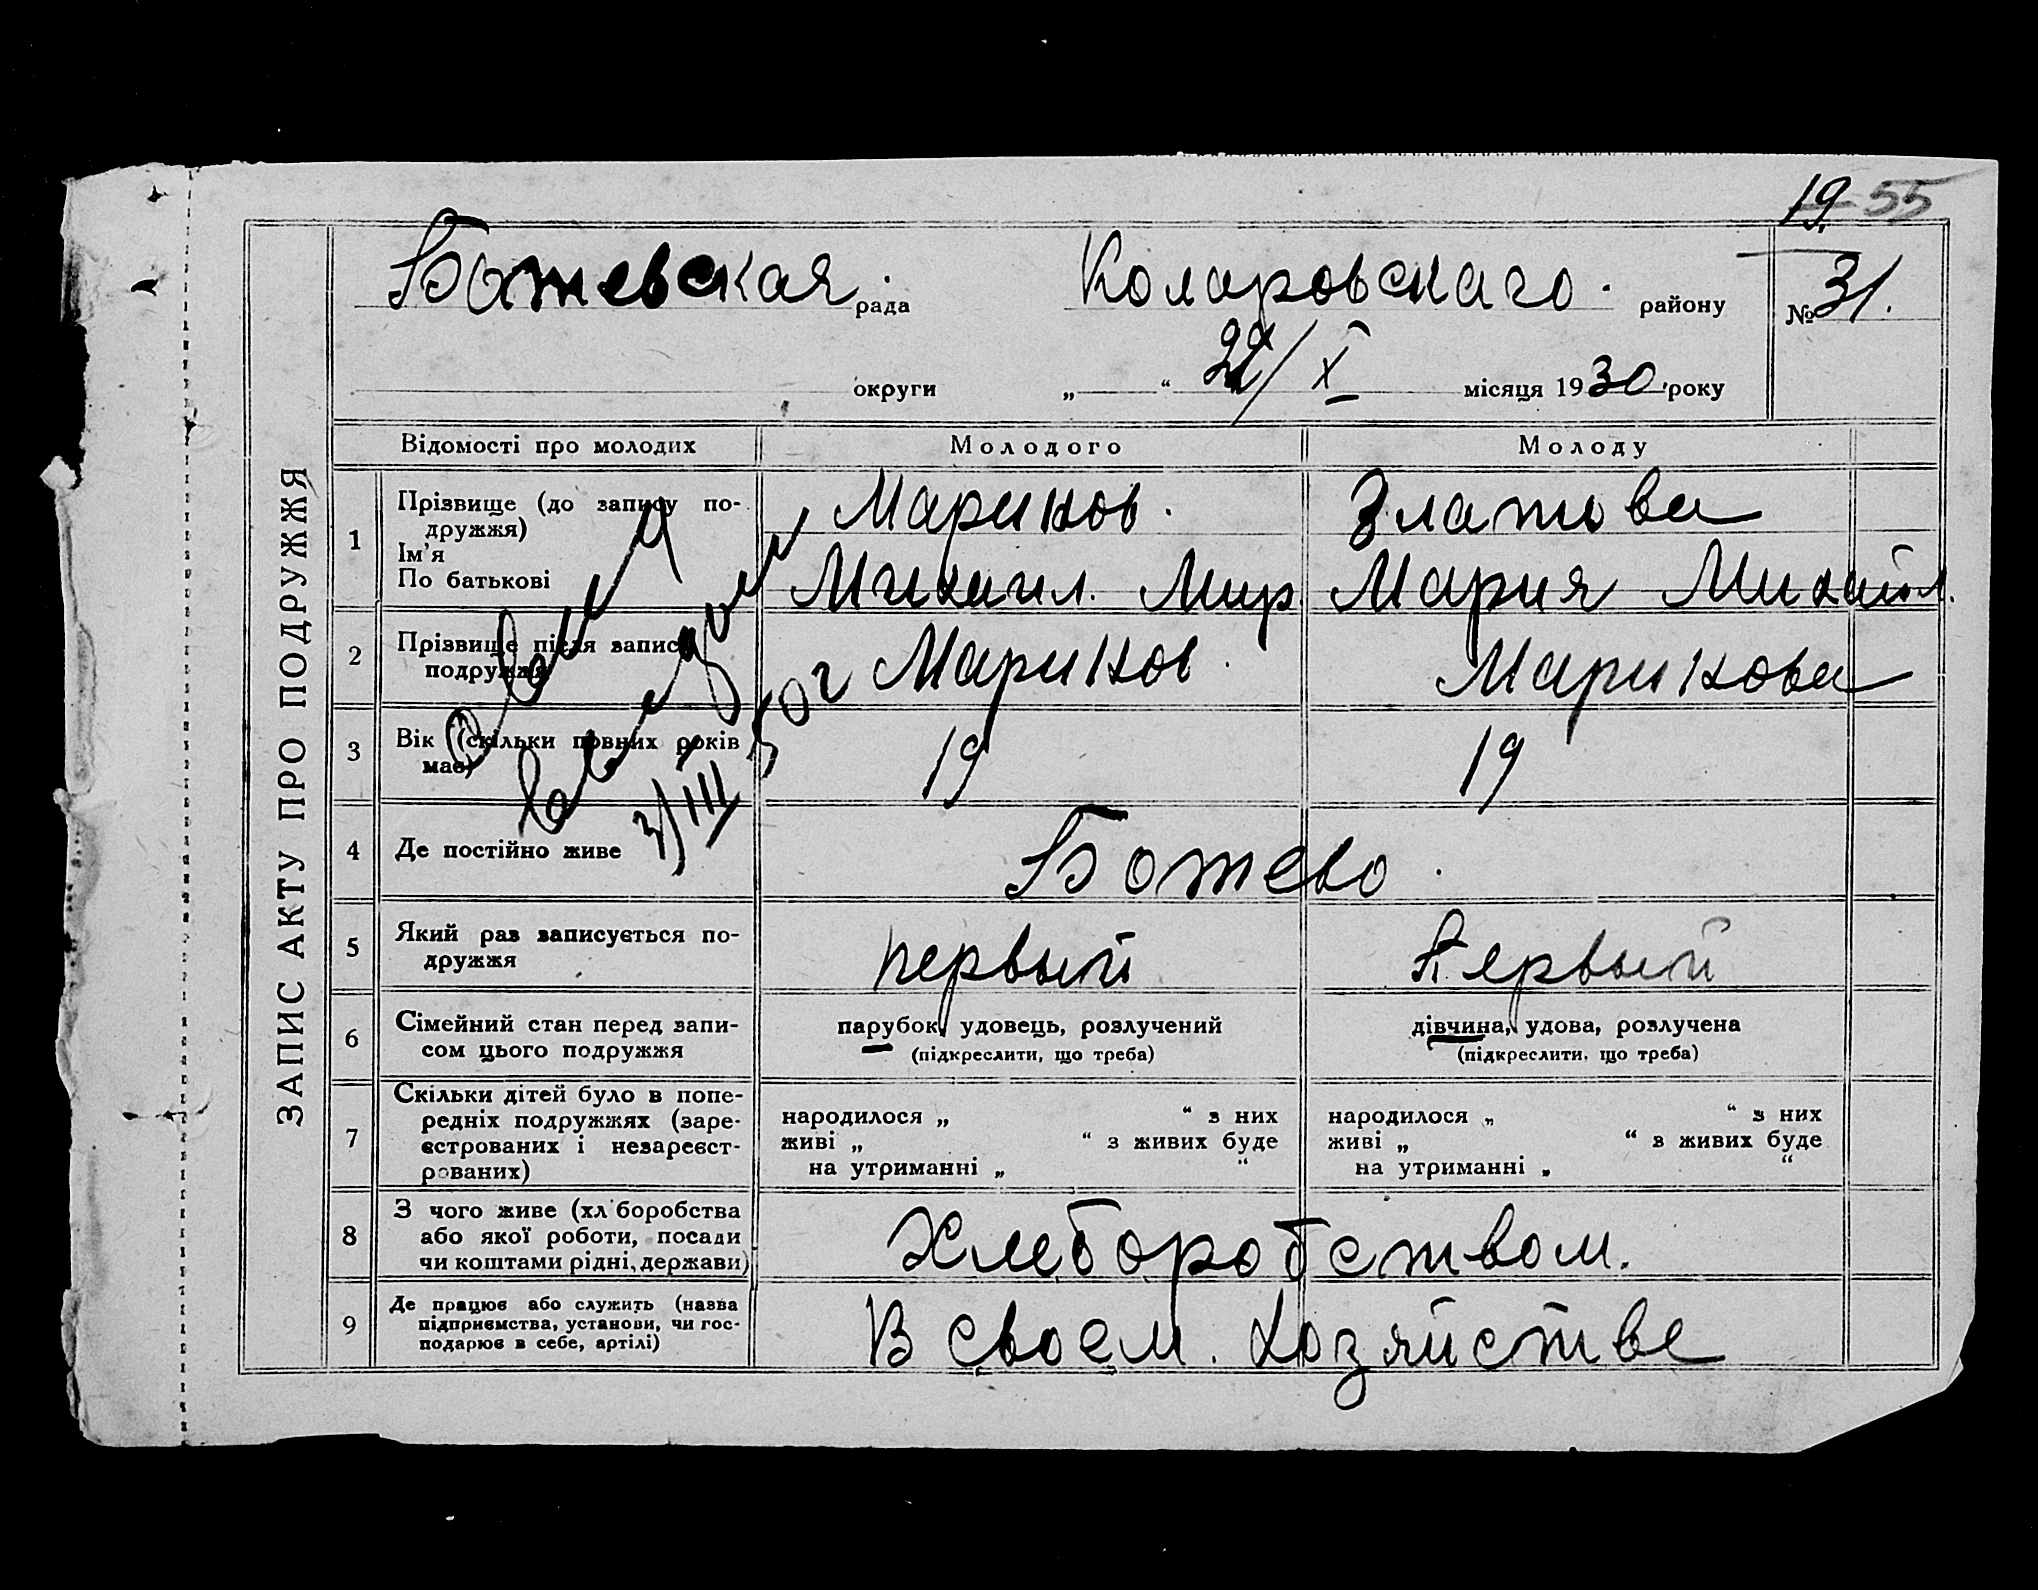 19 55
Божевская рада Коларовскаго. району № 31.
округи „ “ / X місяця 1930 року
ЗАПИС АКТУ ПРО ПОДРУЖЖЯ
Відомості про молодих Молодого Молоду
1 Прізвище (до запису по-
дружжя)
Ім’я
По батькові
Маринов. Златова
Михаил. Мир. Мария Михайл.
2 Прізвище після запису
подружжя
Маринов. Маринова
3 Вік (скільки повних років
має)
19 19
3/III 50 г
4 Де постійно живе Божево.
5 Який раз записується по-
дружжя
первый Первый
6 Сімейний стан перед запи-
сом цього подружжя
парубок, удовець, розлучений
(підкреслити, що треба)
дівчина, удова, розлучена
(підкреслити, що треба)
7 Скільки дітей було в попе-
редніх подружжях (заре-
єстрованих і незареєст-
рованих)
народилося „ “ з них
живі „ “ з живих буде
на утриманні „ “
народилося „ “ з них
живі „ “ з живих буде
на утриманні „ “
8 З чого живе (хліборобства
або якої роботи, посади
чи коштами рідні, держави)
Хлеборобством.
9 Де працює або служить (назва
підприємства, установи, чи гос-
подарює в себе, артілі)
В своем. хозяйстве